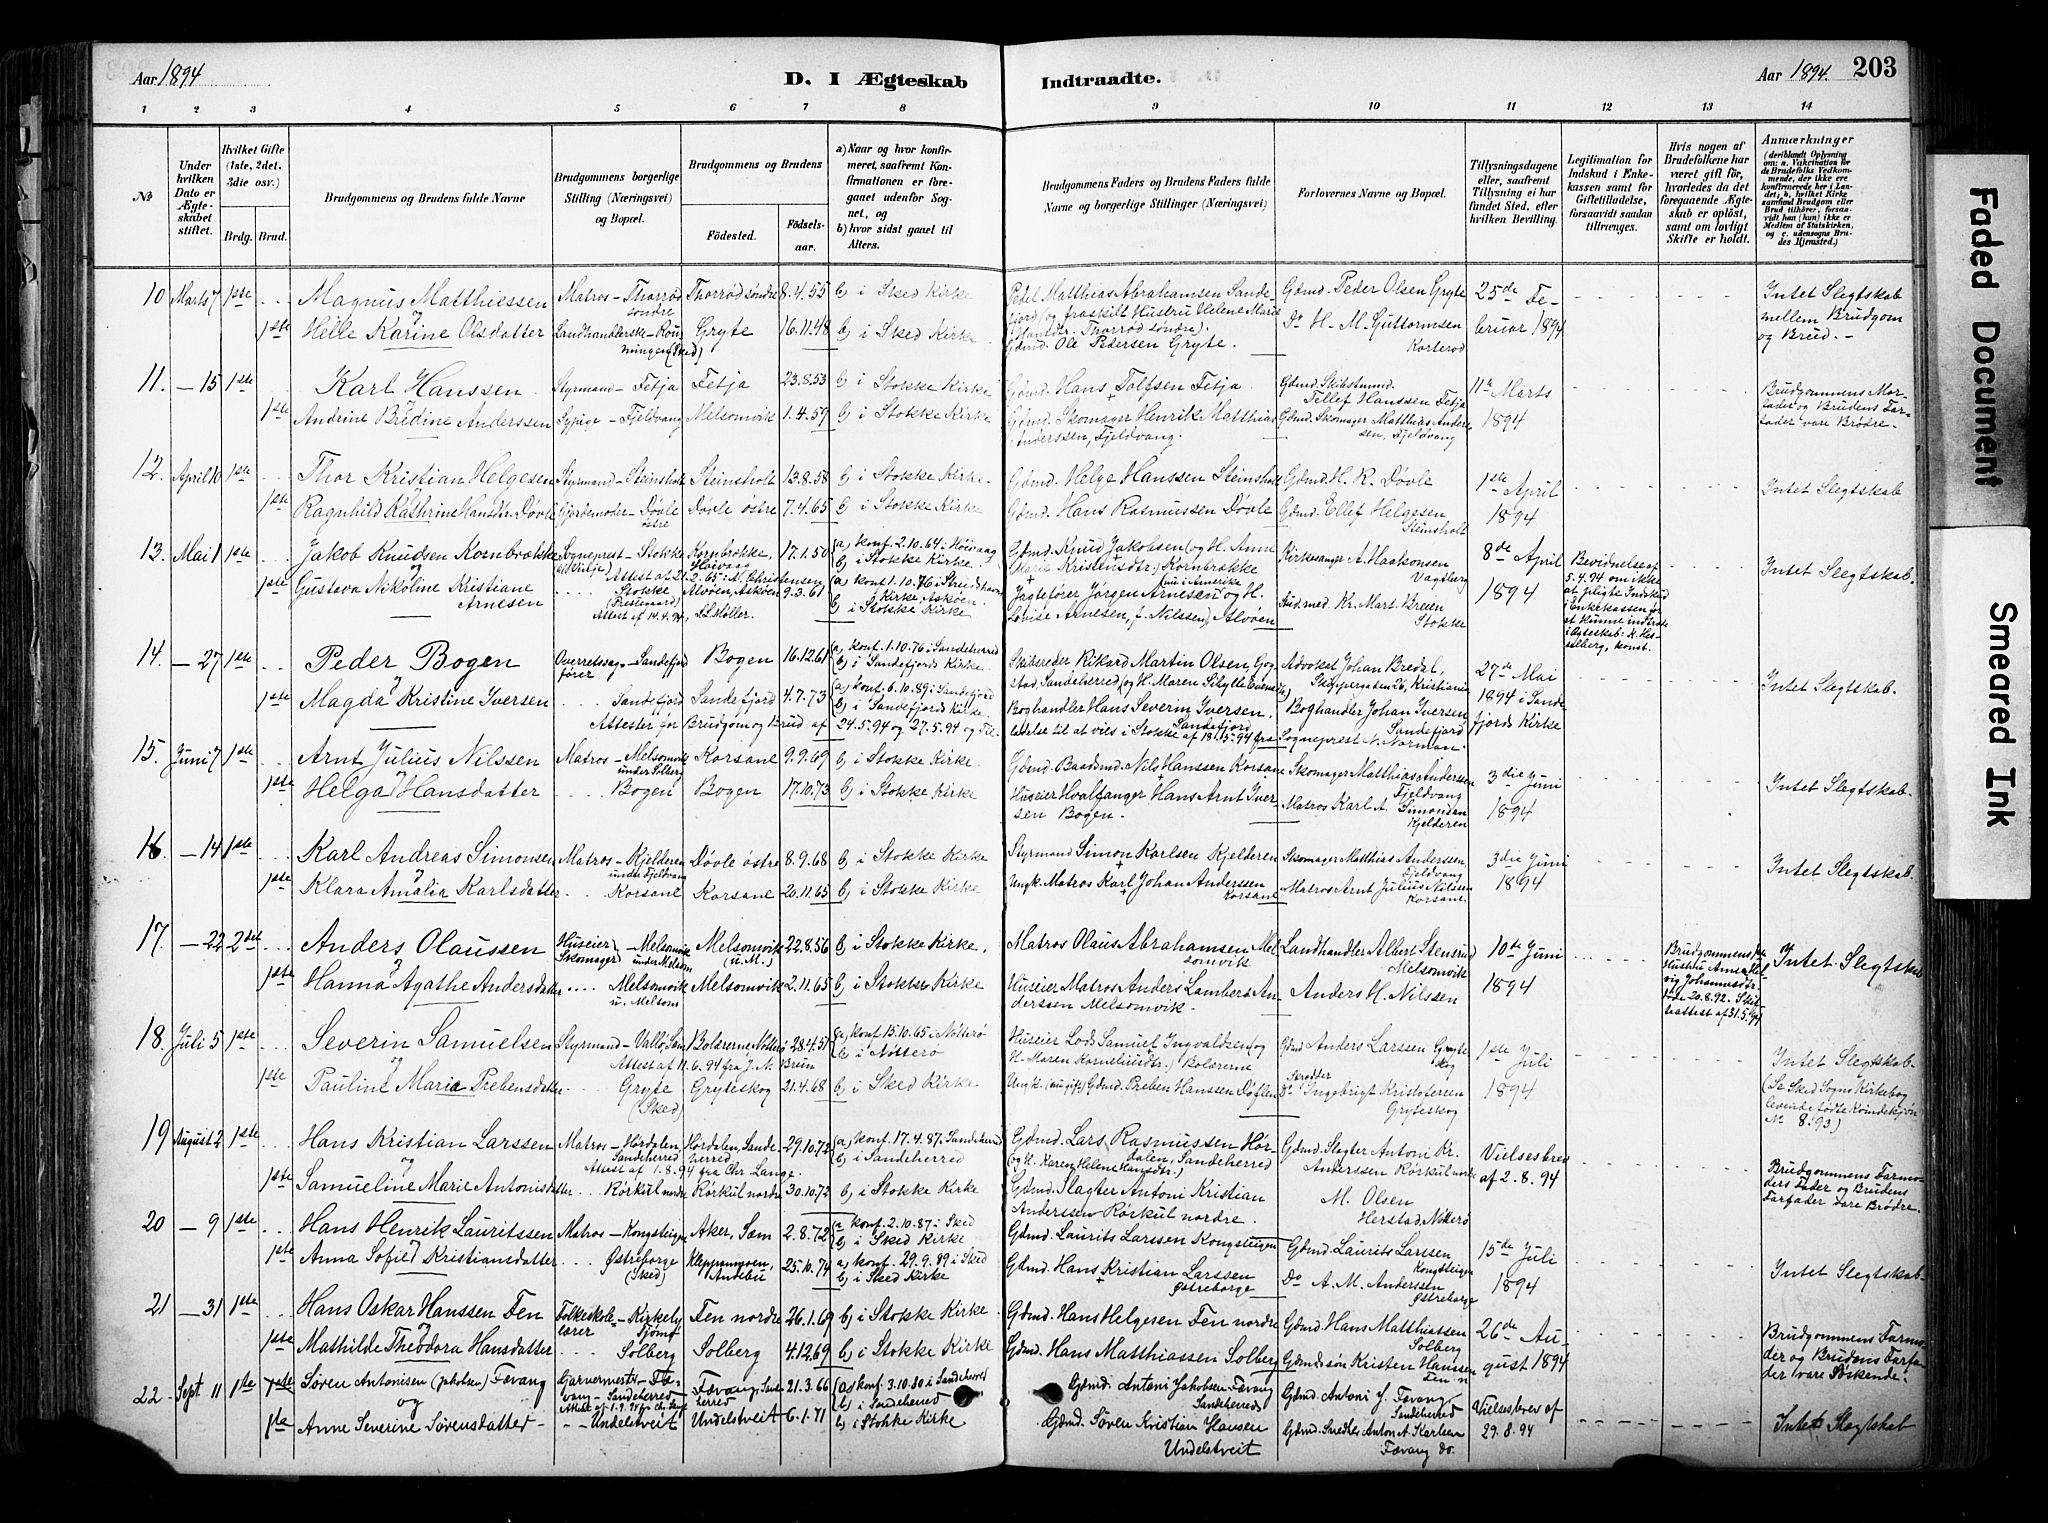 Aar 1894
D. I Ægteskab Indtraadte.
Aar 1894. 203
1 2 3 4 5 6 7 8 9 10 11 12 13 14
№
Under hvilken Dato er Ægteskabet stiftet.
Hvilket Gifte (1ste, 2det, 3die osv.)
Brdg. Brud.
Brudgommens og Brudens fulde Navne
Brudgommens borgerlige Stilling (Næringsvei) og Bopæl.
Brudgommens og Brudens
Fødested. Fødselsaar.
a) Naar og hvor konfirmeret, saafremt Konfirmationen er foregaaet udenfor Sognet, og
b) hvor sidst gaaet til Alters.
Brudgommens Faders og Brudens Faders fulde Navne og borgerlige Stillinger (Næringsvei)
Forlovernes Navne og Bopæl.
Tillysningsdagene eller, saafremt Tillysning ei har fundet Sted, efter hvilken Bevilling.
Legitimation for Indskud i Enkekassen samt for Giftetilladelse, forsaavidt saadan tiltrænges.
Hvis nogen af Brudefolkene har været gift før, hvorledes da det foregaaende Ægteskab er opløst, samt om lovligt Skifte er holdt.
Anmærkninger
(deriblandt Oplysning om: a. Vaccination for de Brudefolks Vedkommende, der ikke ere konfirmerede her i Landet; b. hvilket Kirkesamfund Brudgom eller Brud tilhører, forsaavidt han (hun) ikke er Medlem af Statskirken, og c. udensogns Brudes Hjemsted.)
10 Marts 7 1ste Magnus Matthiessen Matros - Thorrød søndre Thorrød søndre 8.4.55 b) i Sked Kirke Matthias Abrahamsen Sandefjord (og fraskilt Hustru Helene Marie Thorrød søndre). Gdmd. Peder Olsen Gryte 25de Februar 1894 Intet Slegtskab mellem Brudgom og Brud.-
og
1ste Helle Karine Olsdatter Landhandlerske - (Sked) Gryte 16.11.48 b) i Sked Kirke Gdmd. Ole Pedersen Gryte. Do H. M. Guttormsen Korterød
11. - 15 1ste Karl Hanssen Styrmand - Fetja Fetja 23.8.53 b) i Stokke Kirke Gdmd. Hans Tolfsen Fetja. Gdmd. Skibstmmd. Tellef Hanssen Fetja 11te Marts 1894 Brudgommens Morfader og Brudens Farfader vare Brødre.
og
1ste Andrine Bredine Anderssen Sypige - Fjeldvang Melsomvik 1.4.59 b) i Stokke Kirke Gdmd. Skomager Henrik Matthias Anderssen, Fjeldvang. Gdmd. Skomager Matthias Anderssen, Fjeldvang
12. April 10 1ste Thor Kristian Helgesen Styrmand - Steinsholt Steinsholt 13.8.58 b) i Stokke Kirke Gdmd. Helge Hanssen Steinsholt Gdmd. H. R. Døvle 1ste April 1894 Intet Slegtskab
og
1ste Ragnhild Kathrine Hansdtr. Døvle Gjordemoder - Døvle østre Døvle østre 7.4.65 b) i Stokke Kirke Gdmd. Hans Rasmussen Døvle Gdmd. Ellef Helgesen Steinsholt
13. Mai 1 1ste Jakob Knudsen Kornbrække Sogneprest - Stokke Kornbrække, Høivaag 17.1.50 a) konf. 2.10.64 i Høivaag b) i Stokke Kirke Gdmd. Knud Jakobsen (og H. Anne Marie Kristensdtr.) Kornbrække Kirkesanger A. Haakonsen Vagtberg 8de April 1894 Bevidnelse af 5.4.94 om ikke at pligte Indskud i Enkekassen for at kunne indtræde i Ægteskab: K. Hesselberg, konst. Intet Slegtskab.
og
1ste Gustava Nikoline Kristiane Arnesen Stokke (Prestegaard) Attest af 14.4.94, Alvøen, Askøen 9.3.61 a) konf. 1.10.76 i Strudshavn Kirke, Askøen. b) i Stokke Kirke Jagtefører Jørgen Arnesen (nu i Amerika) og H. Lovise Arnesen, f. Nilssen, Alvøen Stud. med. Kr. Mart. Breien Stokke
14. - 27 1ste Peder Bogen Overretssagfører - Sandefjord Bogen 16.12.61 a) konf. 1.10.76 i Sandeherred b) i Sandefjords Kirke Skibsreder Rikard Martin Olsen, Gogstad, Sandeherred (og H. Maren Sibylle Evensen) Advokat Johan Bredal, Skippergaden 26, Kristiania 27de Mai 1894 i Sandefjords Kirke Intet Slegtskab.
og
1ste Magda Kristine Iversen Sandefjord Sandefjord 4.7.73 a) konf. 6.10.89 i Sandefjord b) i Sandefjords Kirke Boghandler Hans Severin Iversen, Sandefjord Boghandler Johan Iversen Sandefjord
Attester for Brudgom og Brud af 24.5.94 og 27.5.94 og Tilladelse til at vies i Stokke af 18.5.94 fra Sogneprest N. Norman.
15. Juni 7 1ste Arnt Julius Nilssen Matros - Melsomvik under Solberg Korsane 9.9.69 b) i Stokke Kirke. Gdmd. Baadsmd. Nils Hanssen Korsane Skomager Matthias Anderssen Fjeldvang 3die Juni 1894 Intet Slegtskab.
og
1ste Helga Hansdatter Bogen Bogen 17.10.73 b) i Stokke Kirke Huseier Hvalfanger Hans Arnt Iversen Bogen. Matros Karl A. Simonsen Kjelderen
16. - 14 1ste Karl Andreas Simonsen Matros - Kjelderen under Fjeldvang Døvle østre 8.9.68 b) i Stokke Kirke Styrmand Simon Karlsen Kjelderen Skomager Matthias Anderssen Fjeldvang 3die Juni 1894 Intet Slegtskab.
og
1ste Klara Amalia Karlsdatter Korsane Korsane 20.11.65 b) i Stokke Kirke Ungk. Matros Karl Johan Anderssen Korsane Matros Arnt Julius Nilssen Korsane
17. - 22 2det Anders Olaussen Huseier Skomager - Melsomvik under Melsom Melsomvik (u. M.) 22.8.56 b) i Stokke Kirke. Matros Olaus Abrahamsen Melsomvik Landhandler Albert Stensrud Melsomvik 10de Juni 1894 Brudgommens Hustru Johannesdtr. døde 20.8.92. Skifteattest af 31.5.94 Intet Slegtskab
og
1ste Hanna Agathe Andersdatter Melsomvik u. Melsom Melsomvik 2.11.65 b) i Stokke Kirke Huseier Matros Anders Lambert Anderssen Melsomvik. Anders H. Nilssen
18. Juli 5 1ste Severin Samuelsen Styrmand - Vallø, Sem Bolærerne Nøtterø 28.4.51 a) konf. 15.10.65 i Nøtterø b) i Nøtterø Huseier Lods Samuel Ingvaldsen (og H. Maren Korneliusdtr.) Bolærerne Gdmd. Anders Larssen Gryteskog 1ste Juli 1894 Intet Slegtskab.
Attest af 11.6.94 fra J. N. Bruun
og
1ste Pauline Maria Prebensdatter Gryte (Sked) Gryteskog 21.4.68 b) i Sked Kirke Ungk. (nu gift) Gdmd. Preben Hanssen Døflen Skrædder Do Ingebrigt Kristofersen Gryteskog (Se Sked Sogns Kirkebog levende fødte Kvindekjøn № 8. 93)
19 August 2 1ste Hans Kristian Larssen Matros - Hørdalen, Sandeherred Hørdalen, Sandeherred 29.10.72 a) konf. 17.4.87. Sandeherred b) i Sandeherred Gdmd. Lars Rasmussen Hørdalen, Sandeherred (og H. Karen Helene Hansdtr.) Gdmd. Slagter Antoni Kr. Anderssen Rørkul nordre Vielsesbrev af 2.8.94 Brudgommens Farmoders Fader og Brudens Farfader vare Brødre.
Attest af 1.8.94 fra Chr. Lange.
og
1ste Samueline Marie Antonisdatter Rørkul nordre Rørkul nordre 30.10.72 b) i Stokke Kirke Gdmd. Slagter Antoni Kristian Anderssen Rørkul nordre. M. Olsen Herstad, Nøtterø
20 - 9 1ste Hans Henrik Lauritssen Matros - Kongsteigen Aker, Sæm 2.8.72 a) konf. 2.10.87 i Sked b) i Sked Kirke Gdmd. Laurits Larssen Kongsteigen Gdmd. Laurits Larssen Kongsteigen 15de Juli 1894 Intet Slegtskab
og
1ste Anna Sofie Kristiansdatter Østreborge (Sked) Andebu 25.10.74 a) konf. 29.9.89 i Sked b) i Sked Kirke Gdmd. Hans Kristian Larssen Østreborge Do A. M. Andersen Østreborge
21 - 31 1ste Hans Oskar Hanssen Fen Folkeskolelærer - Kirkeby Tjømø Fen nordre 26.1.69 b) i Stokke Kirke Gdmd. Hans Helgesen Fen nordre Gdmd. Hans Matthiassen Solberg 26de August 1894 Brudgommens Farmoder og Brudens Farfader vare Søskende.
og
1ste Mathilde Theodora Hansdatter Solberg Solberg 4.12.69 b) i Stokke Kirke Gdmd. Hans Matthiassen Solberg Gdmdssøn Kristen Hanssen Fen n
22 Sept. 11 1ste Søren Antonisen (Jakobsen) Fævang Garvermester - Fævang - Sandeherred Fævang, Sandeherred 21.3.66 a) konf. 3.10.80 i Sandeherred b) i Sandeherred Gdmd. Antoni Jakobsen Fævang Sandeherred Gdmd. Antoni J. Fævang Sandeherred Vielsesbrev af 29.8.94 Intet Slegtskab
og
1ste Anne Severine Sørensdatter Undelstveit Undelstveit 6.1.71 b) i Stokke Kirke Gdmd. Søren Kristian Hansen Undelstveit Gdmd. Snedker Anton A. Karlsen Fævang do.
Faded Document
Smeared Ink